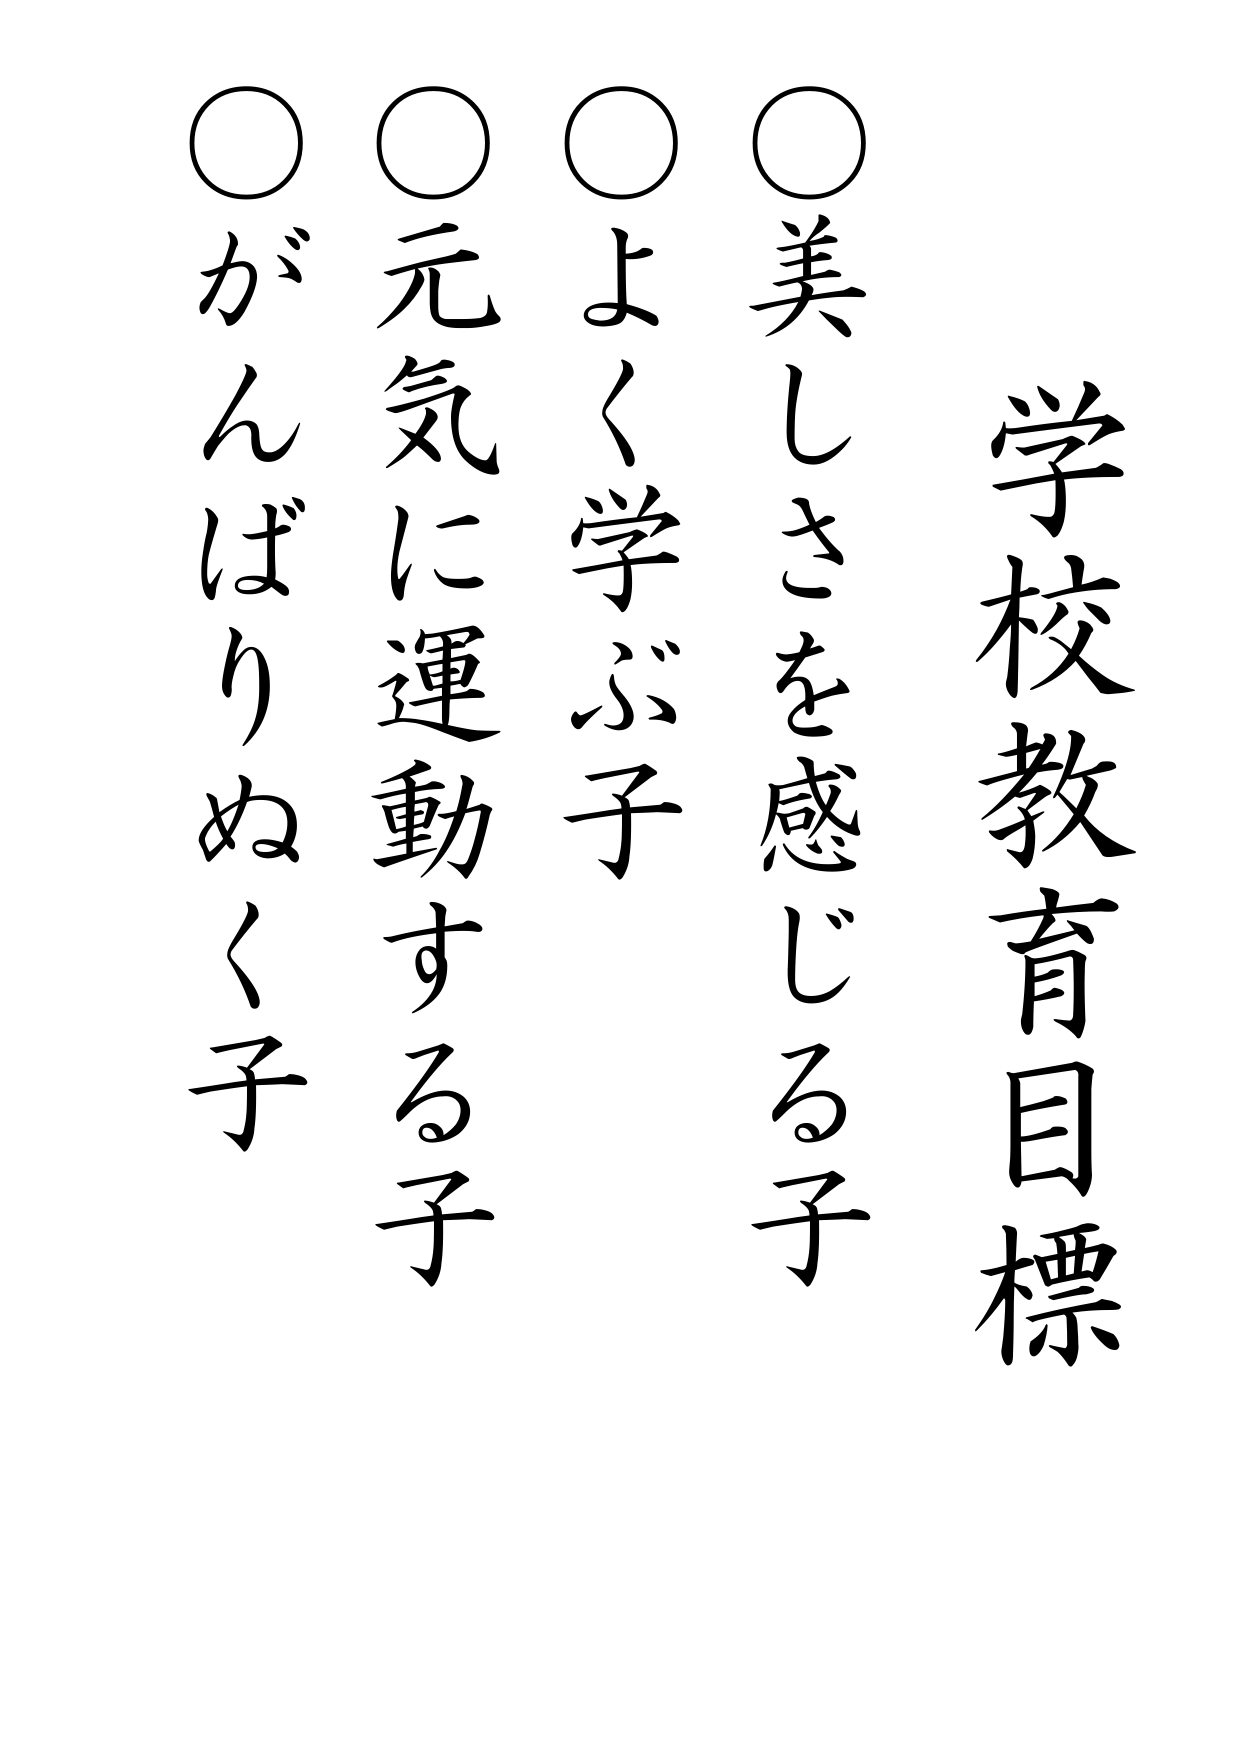 学校教育目標
○美しさを感じる子
○よく学ぶ子
○元気に運動する子
○がんばりぬく子